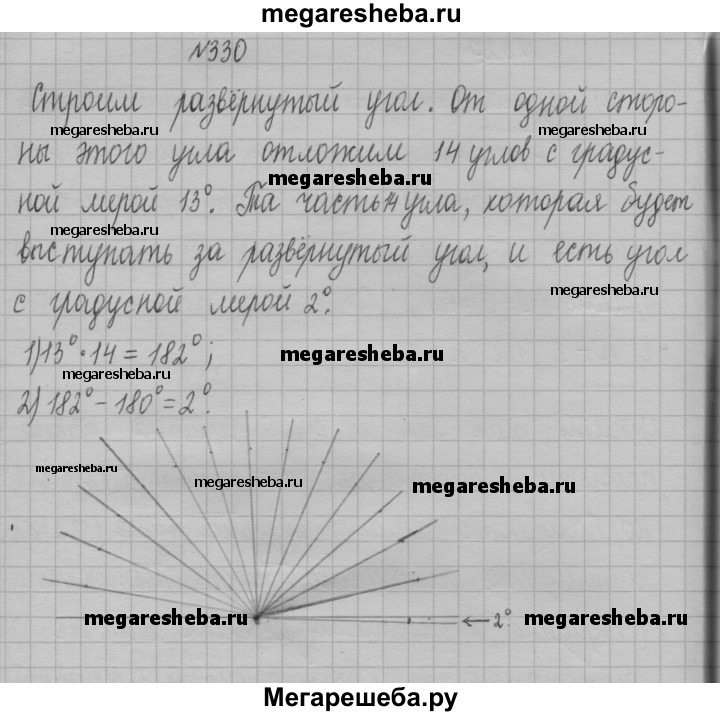 megaresheba.ru
№330
Строим развёрнутый угол. От одной сторо-
megaresheba.ru megaresheba.ru
ны этого угла отложим 14 углов с градус-
megaresheba.ru
ной мерой 13°. Та часть угла, которая будет
megaresheba.ru
выступать за развёрнутый угол, и есть угол
megaresheba.ru
с градусной мерой 2°.
1) 13° · 14 = 182°;
megaresheba.ru
megaresheba.ru
2) 182° - 180° = 2°.
megaresheba.ru
megaresheba.ru
megaresheba.ru
megaresheba.ru
megaresheba.ru
← 2°.
megaresheba.ru
Мегарешеба.ру